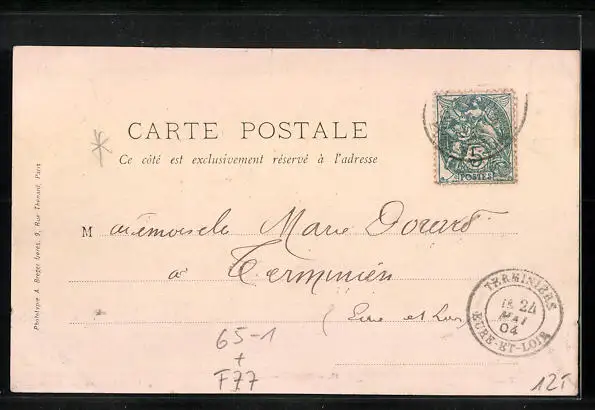 CARTE POSTALE
Ce côté est exclusivement réservé à l'adresse
5
POSTES
Mademoiselle Marie
à Terminiers
(Eure et Loir)
TERMINIERS
24
MAI
04
EURE-ET-LOIR
65-1
+
F77
12T
Phototypie A. Breger frères, 9, Rue Thénard, Paris